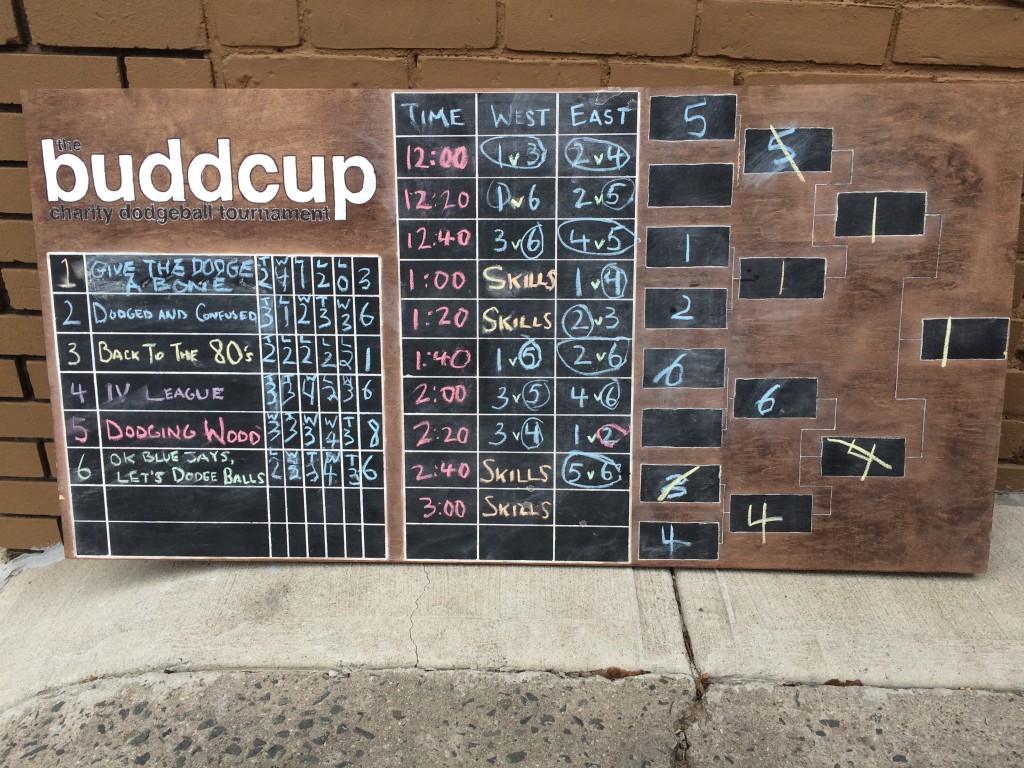 the
buddcup
charity dodgeball tournament
1 GIVE THE DODGE A BONE 3
2 DODGED AND CONFUSED 6
3 BACK TO THE 80's 1
4 IV LEAGUE 6
5 DODGING WOOD 8
6 OK BLUE JAYS, LET'S DODGE BALLS 6
TIME WEST EAST
12:00 1 v 3 2 v 4
12:20 1 v 6 2 v 5
12:40 3 v 6 4 v 5
1:00 SKILLS 1 v 4
1:20 SKILLS 2 v 3
1:40 1 v 5 2 v 6
2:00 3 v 5 4 v 6
2:20 3 v 4 1 v 2
2:40 SKILLS 5 v 6
3:00 SKILLS
5
1
2
6
3
4
5
1
6
4
1
4
1